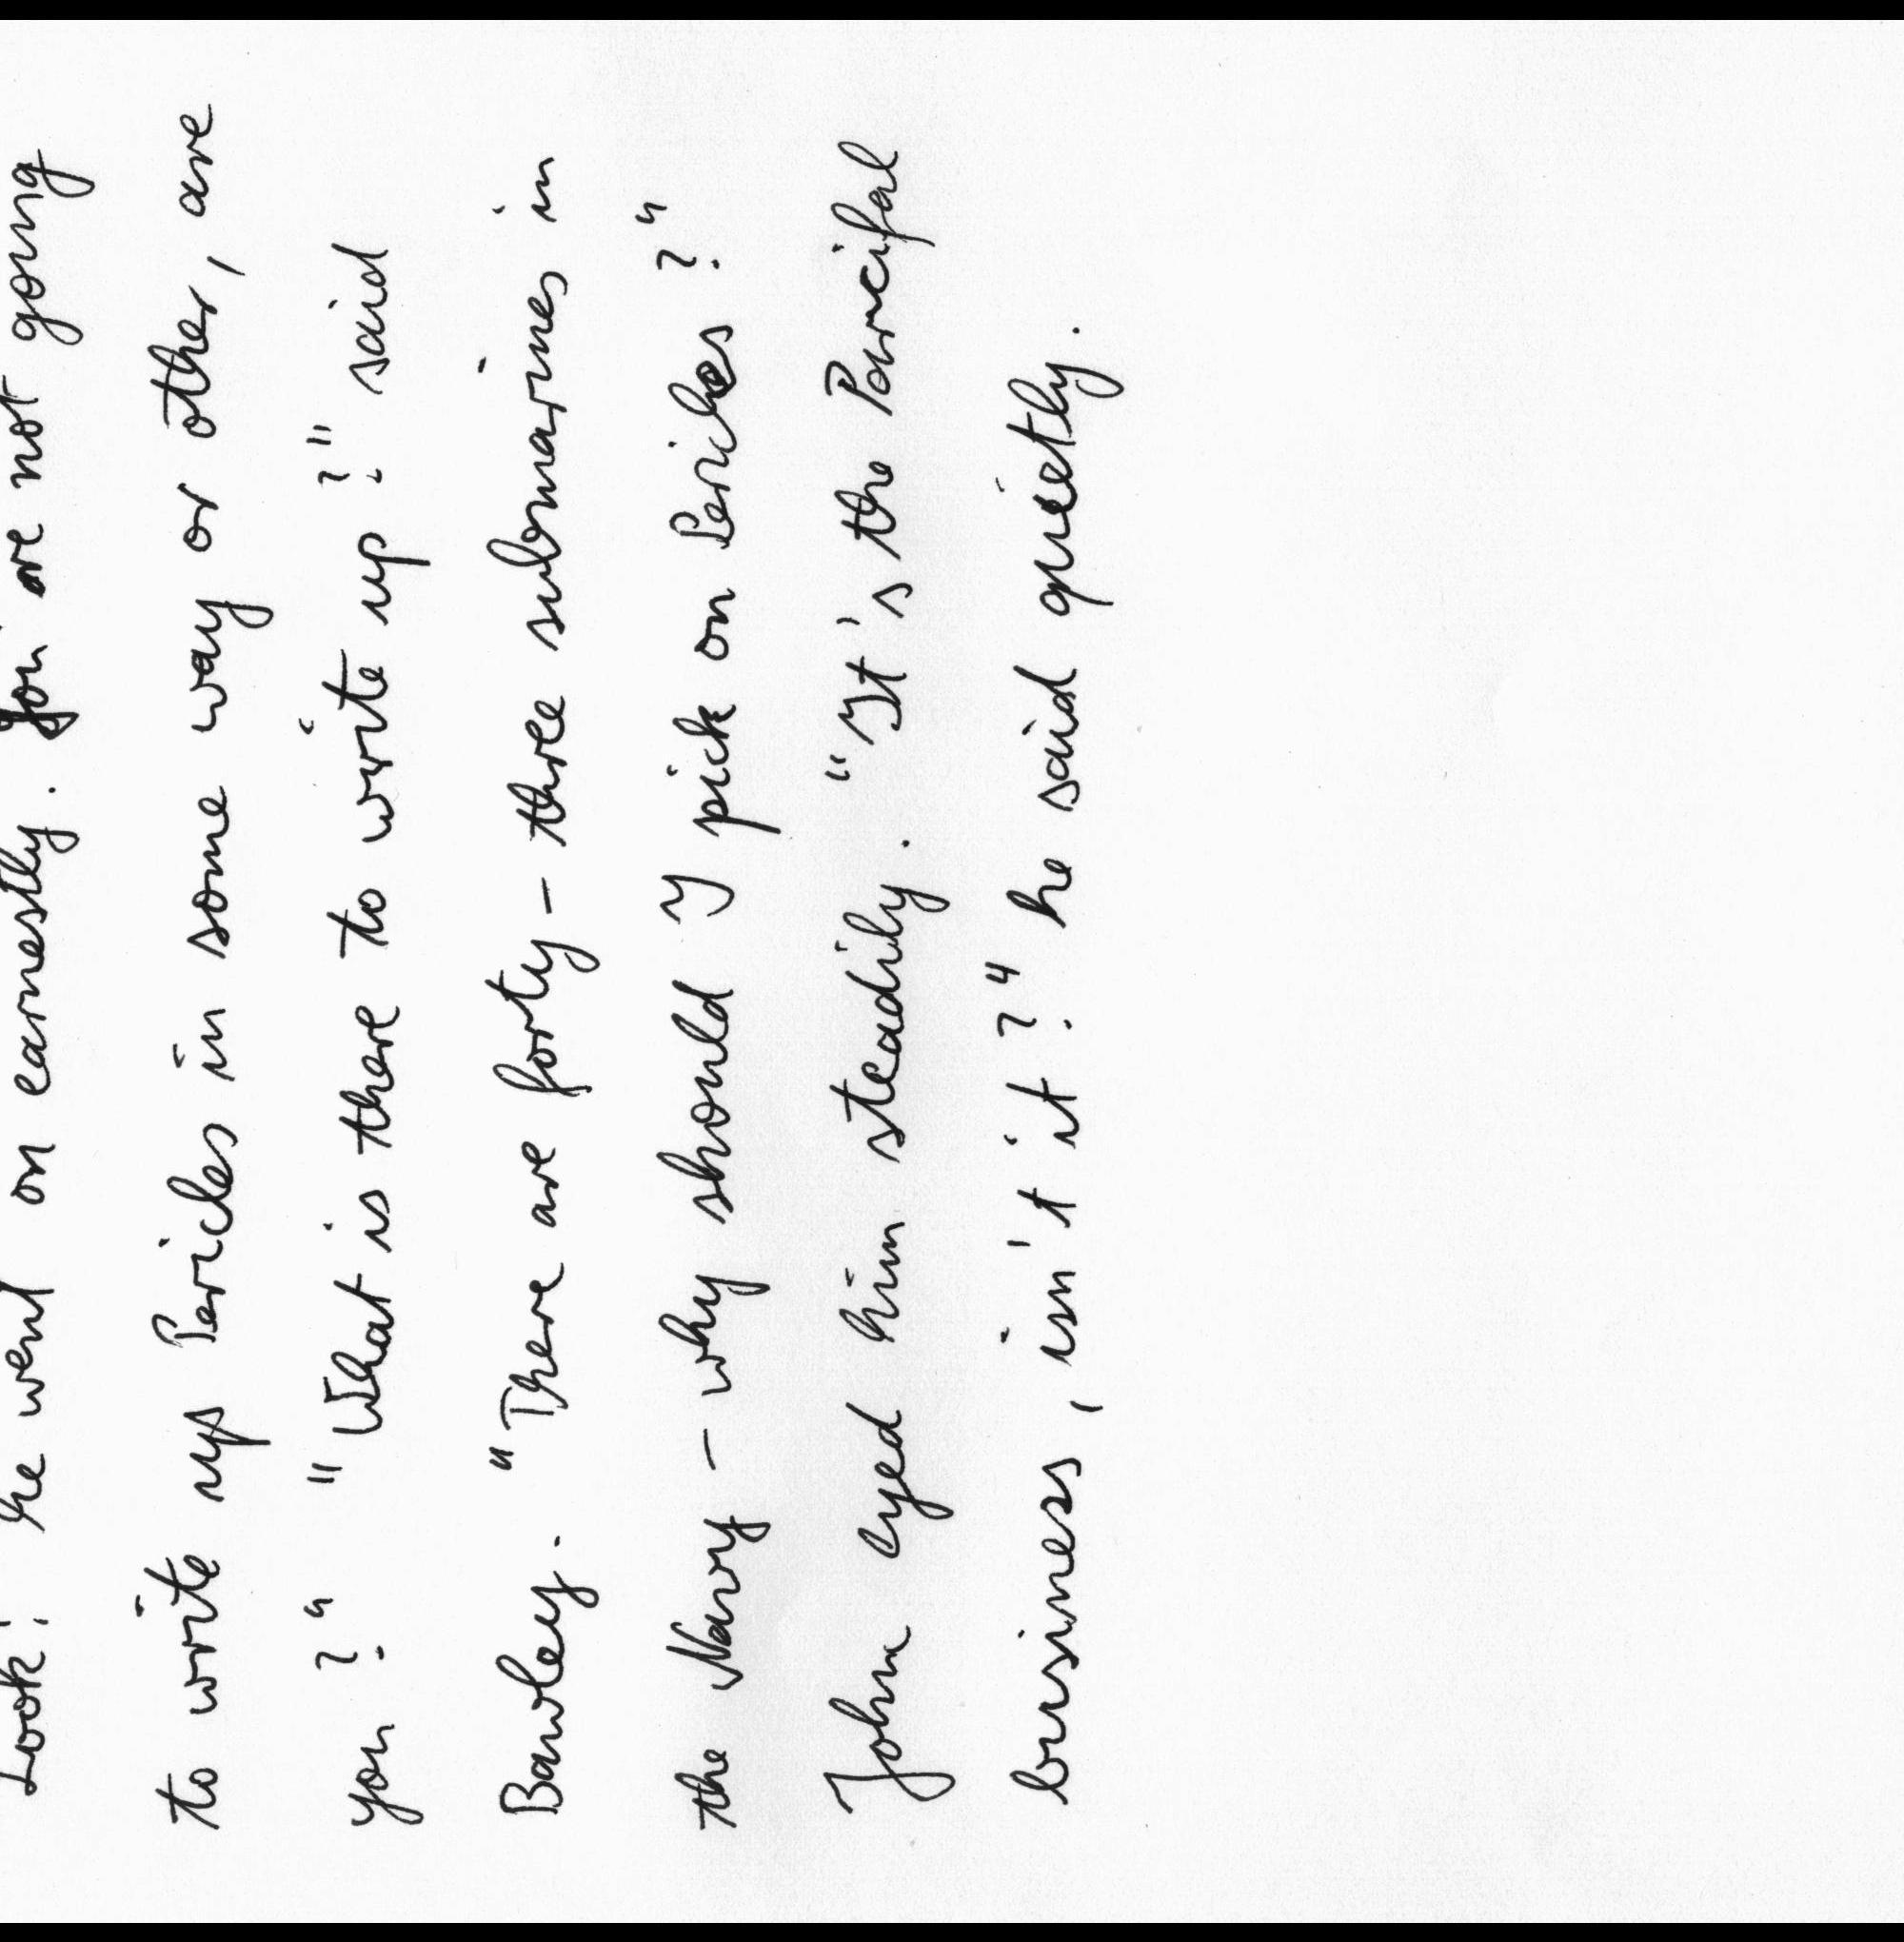 Look! he went on earnestly. You are not going
to write up Pericles in some way or other, are
you?" "What is there to write up?" said
Bawley. "There are forty-three submarines in
the Navy - why should I pick on Pericles?"
John eyed him steadily. "It's the Parcifal
business, isn't it?" he said quietly.